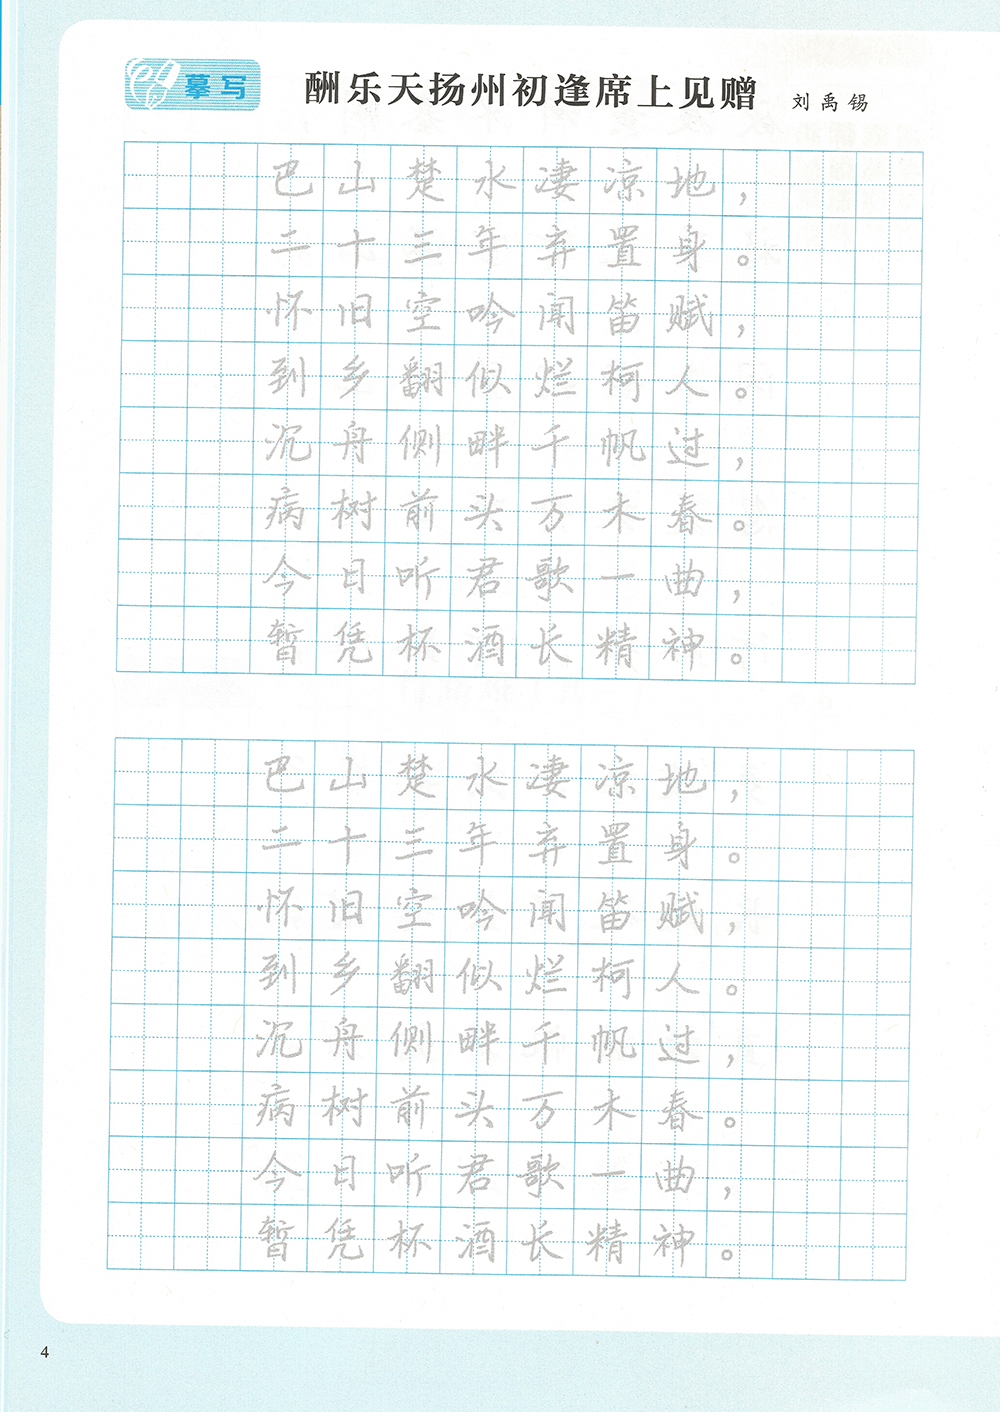 摹写
酬乐天扬州初逢席上见赠 刘禹锡
巴山楚水凄凉地，
二十三年弃置身。
怀旧空吟闻笛赋，
到乡翻似烂柯人。
沉舟侧畔千帆过，
病树前头万木春。
今日听君歌一曲，
暂凭杯酒长精神。
巴山楚水凄凉地，
二十三年弃置身。
怀旧空吟闻笛赋，
到乡翻似烂柯人。
沉舟侧畔千帆过，
病树前头万木春。
今日听君歌一曲，
暂凭杯酒长精神。
4